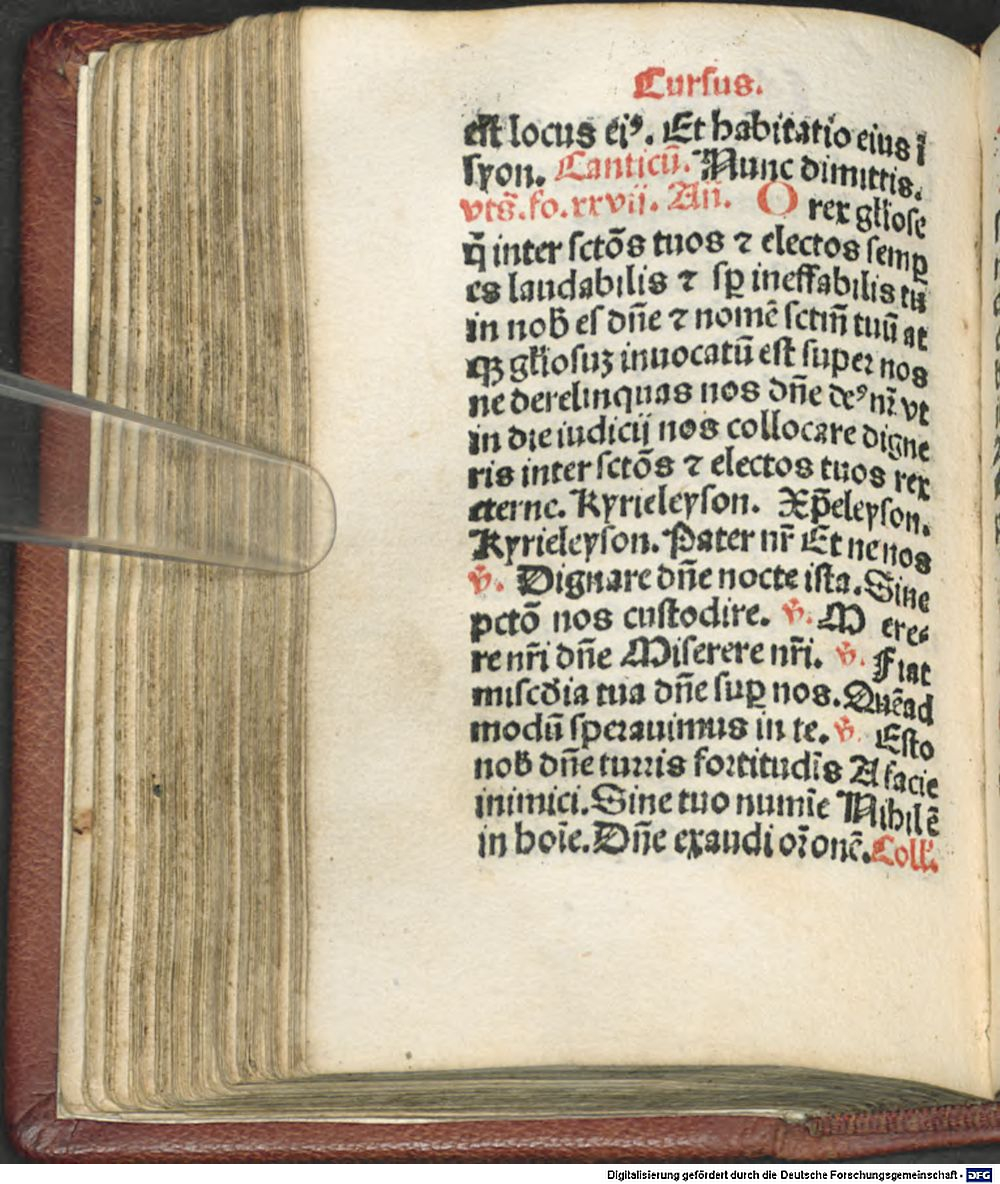 Cursus.
est locus eiꝰ. Et habitatio eius ī
syon. Canticū. Nunc dimittis.
vts̄. fo. xxvij. Añ. O rex gl̄iose
q̄ inter sctōs tuos ⁊ electos semꝑ
es laudabilis ⁊ sꝑ ineffabilis tu
in nob̄ es dñe ⁊ nomē sctm̄ tuū at
qꝫ gl̄iosuꝫ inuocatū est super nos
ne derelinquas nos dñe deꝰ nr̄ vt
in die iudicij nos collocare digne
ris inter sctōs ⁊ electos tuos rex
eterne. Kyrieleyson. Xp̄eleyson.
Kyrieleyson. Pater nr̄ Et ne nos
℣. Dignare dñe nocte ista. Sine
pctō nos custodire. ℣. M ere⸗
re nr̄i dñe Miserere nr̄i. ℣. Fiat
misc̄dia tua dñe suꝑ nos. Quēad
modū sperauimus in te. ℣. Esto
nob̄ dñe turris fortitudīs A facie
inimici. Sine tuo numīe Nihil ē
in hoīe. Dñe exaudi or̄onē. Coll̄.
Digitalisierung gefördert durch die Deutsche Forschungsgemeinschaft - DFG